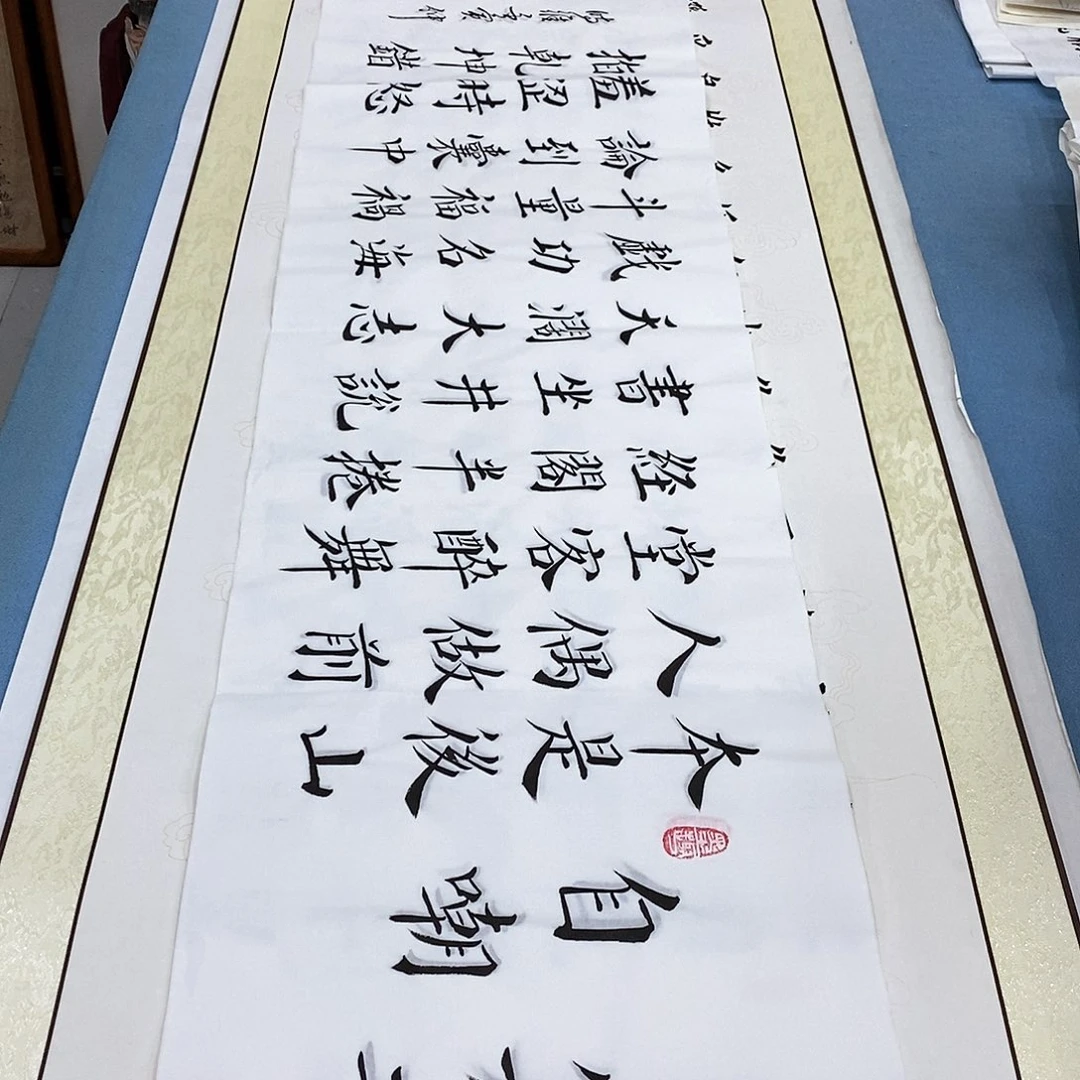 自嘲
本是後山
人偶做前
堂客醉舞
經閣半捲
書坐井說
天濶大志
戲功名海
斗量福禍
論到囊中
羞澀時怒
指乾坤錯